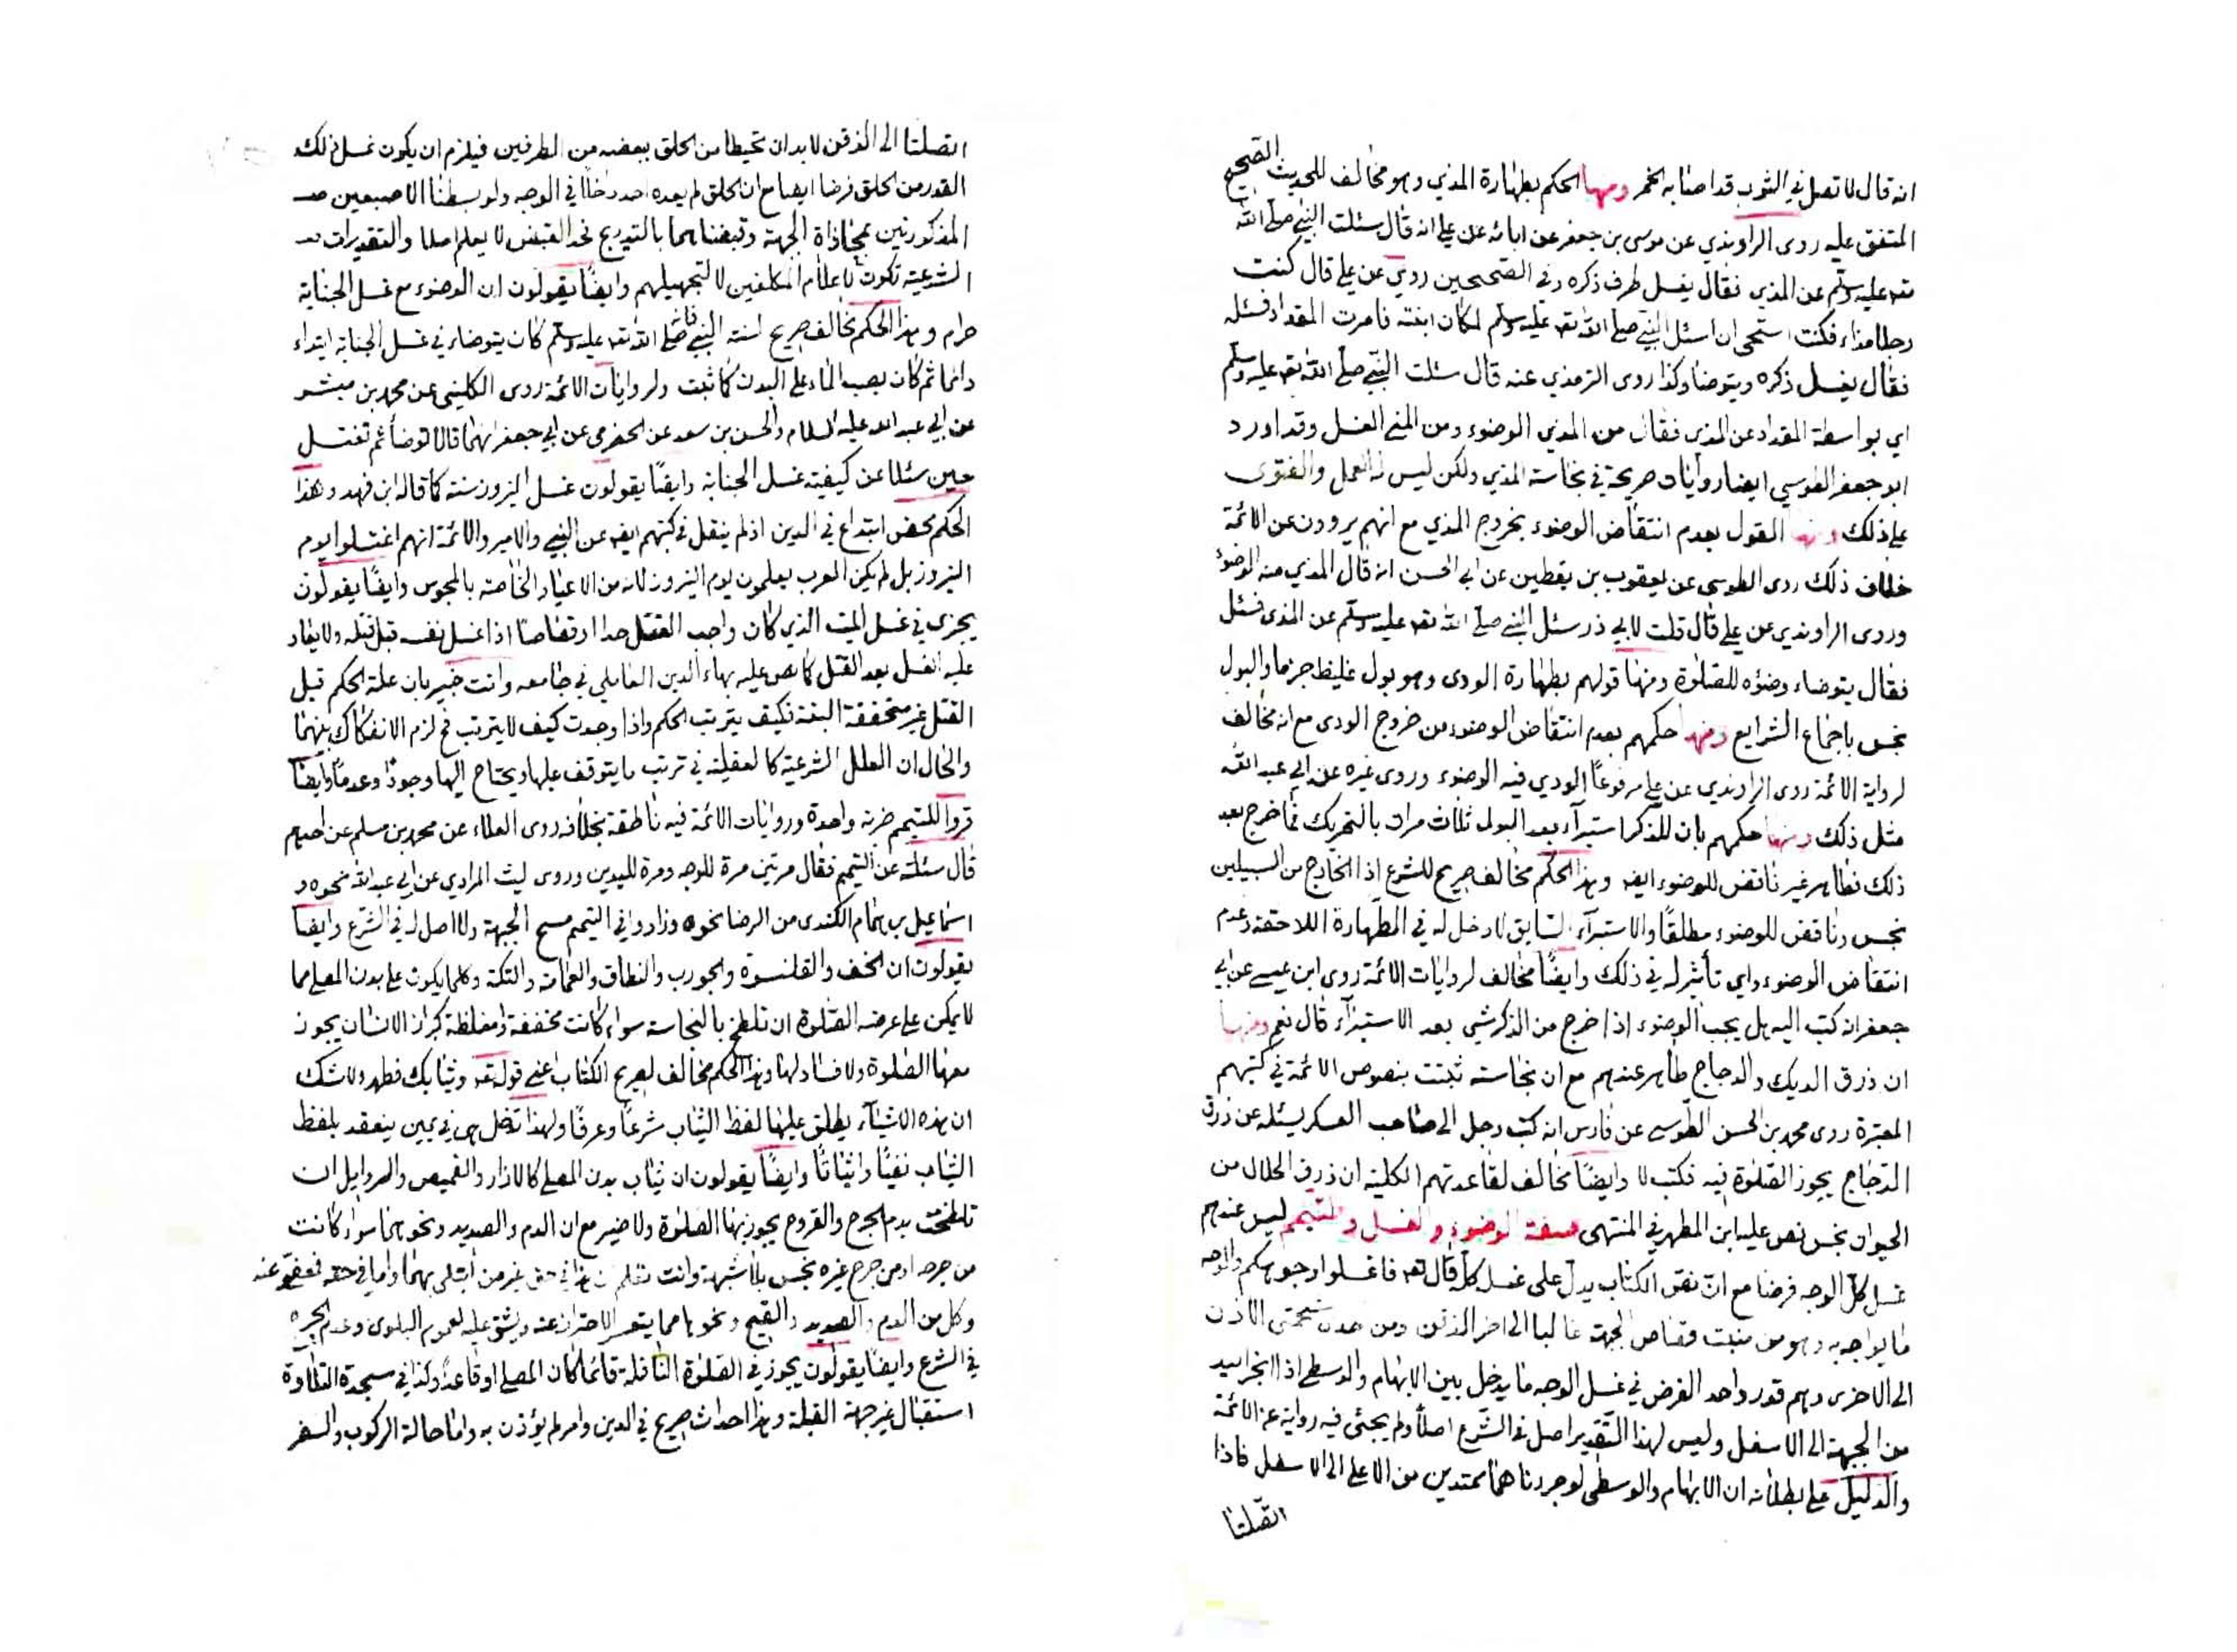 انه قال لا تصل في الثوب قد اصابه الخمر ومنها الحكم بطهارة المذي وهو مخالف للحديث الصحيح
المتفق عليه روى الراوندي عن موسى بن جعفر عن ابائه عن علي انه قال سئلت النبي صلى الله
تعه عليه وسلم عن المذي فقال يغسل طرف ذكره وفي الصحيحين روي عن علي قال كنت
رجلا مذاء فكنت استحي ان اسئل النبي صلى الله تعه عليه وسلم لمكان ابنته فامرت المقداد فسئله
فقال يغسل ذكره ويتوضأ وكذا روى الترمذي عنه قال سئلت النبي صلى الله تعه عليه وسلم
اي بواسطة المقداد عن المذي فقال من المذي الوضوء ومن المني الغسل وقد اورد
ابو جعفر الطوسي ايضا روايات صريحة في نجاسة المذي ولكن ليس له العمل والفتوى
على ذلك ومنها القول بعدم انتقاض الوضوء بخروج المذي مع انهم يروون عن الائمة
خلاف ذلك روى الطوسى عن يعقوب بن يقطين عن ابي الحسن انه قال المذي منه الوضوء
وروى الراوندي عن علي قال قلت لابي ذر سئل النبي صلى الله تعه عليه وسلم عن المذى فسئل
فقال يتوضاء وضوءه للصلوة ومنها قولهم بطهارة الودى وهو بول غليظ جزما والبول
نجس باجماع الشرايع ومنها حكمهم بعدم انتقاض الوضوء من خروج الودى مع انه مخالف
لرواية الائمة روى الراوندي عن علي مرفوعًا الودي فيه الوضوء وروى غيره عن ابي عبد الله
مثل ذلك ومنها حكمهم بان للذكر استبرآء بعد البول ثلاث مرات بالتحريك فما خرج بعد
ذلك فطاهر غير ناقض للوضوء ايضه وهذا الحكم مخالف صريح للشرع اذ الخارج من السبيلين
نجس وناقض للوضوء مطلقًا والاستبرآء السابق لا دخل له في الطهارة اللاحقة وعدم
انتقاض الوضوء واي تأثير له في ذلك وايضًا مخالف لروايات الائمة روى ابن عيسى عن ابي
جعفر انه كتب اليه هل يجب الوضوء اذا خرج من الذكر شي بعد الاستبرآء قال نعم ومنها
ان ذرق الديك والدجاج طاهر عندهم مع ان نجاسته ثبتت بنصوص الائمة في كتبهم
المعتبرة روى محمد بن الحسن الطوسى عن فارس انه كتب رجل الى صاحب العسكر يسئله عن ذرق
الدجاج يجوز الصلوة فيه فكتب لا وايضًا مخالف لقاعدتهم الكلية ان ذرق الحلال من
الحيوان نجس نص عليه ابن المطهر في المنتهى صفة الوضوء والغسل والتيمم ليس عندهم
غسل كل الوجه فرضا مع انّ نص الكتاب يدلّ على غسل كلّه قال تعه فاغسلوا وجوهكم والوجه
ما يواجه به وهو من منبت قصاص الجبهة غالبا الى اخر الذقن ومن شحمتى الاذن
الى الاخرى وهم قدروا حد الفرض في غسل الوجه ما يدخل بين الابهام والوسطى اذا انجر اليد
من الجبهة الى الاسفل وليس لهذا التّقدير اصل في الشّرع اصلاً ولم يجئ فيه رواية عن الائمة
والدليل على بطلانه ان الابهام والوسطى لو جررناهما ممتدين من الاعلى الى الاسفل فاذا
اتّصلتا
اتصلتا الى الذقن لا بد ان تحيطا من الحلق ببعضه من الطرفين فيلزم ان يكون غسل ذلك
القدر من الحلق فرضا ايضا مع ان الحلق لم يعده احد داخلا في الوجه ولو بسطنا الاصبعين
المذكورتين بمحاذاة الجبهة وقبضناهما بالتدريج نحد القبض لا يعلم اصلا والتقديرات
الشرعية تكون لاعلام المكلفين لا لتجهيلهم وايضًا يقولون ان الوضوء مع غسل الجنابة
حرام وهذا الحكم مخالف صريح لسنة النبي فانه صلى الله تعه عليه وسلم كان يتوضاء في غسل الجنابة ابتداء
دائما ثم كان يصب الماء على البدن كما ثبت ولروايات الائمة روى الكليني عن محمد بن ميسر
عن ابي عبد الله عليه السلام والحسن بن سعد عن الحضرمى عن ابي جعفر انهما قالا توضأ ثم تغتسل
حين سئلا عن كيفية غسل الجنابة وايضًا يقولون غسل النيروز سنة كما قاله ابن فهد وهذا
الحكم محض ابتداع في الدين اذ لم ينقل في كتبهم ايضه عن النبي والامير والائمة انهم اغتسلوا يوم
النيروز بل لم يكن العرب يعلمون يوم النيروز لانه من الاعياد الخاصة بالمجوس وايضًا يقولون
يجزى في غسل الميت الذي كان واجب القتل حدا او قصاصًا اذا غسل نفسه قبل قتله ولا يعاد
عليه الغسل بعد القتل كما نص عليه بهاء الدين العاملي في جامعه وانت خبير بان علة الحكم قبل
القتل غير متحققة البتة فكيف يترتب الحكم واذا وجدت كيف لا يترتب فح لزم الانفكاك بينهما
والحال ان العلل الشرعية كالعقلية في ترتب ما يتوقف عليها ويحتاج اليها وجودًا وعدمًا وايضًا
قروا للتيمم ضربة واحدة وروايات الائمة فيه ناطقة بخلافه روى العلاء عن محمد بن مسلم عن احدهم
قال سئلته عن التيمم فقال مرتين مرة للوجه ومرة لليدين وروى ليث المرادي عن ابي عبد الله نحوه و
اسماعيل بن همام الكندى من الرضا نحوه وزادوا في التيمم مسح الجبهة ولا اصل له في الشّرع وايضا
يقولون ان الخف والقلنسوة والجورب والنطاق والعمامة والتكة وكلما يكون على بدن المصلى مما
لا يمكن على عرضه الصلوة ان تلطخ بالنجاسة سواء كانت مخففة او مغلظة كبراز الانسان يجوز
معها الصلوة ولا فساد لها وهذا الحكم مخالف لصريح الكتاب اعني قوله تعه وثيابك فطهر ولا شك
ان هذه الاشيآء يطلق عليها لفظ الثياب شرعًا وعرفًا ولهذا تدخل هى في يمين ينعقد بلفظ
الثياب نفيًا واثباتًا وايضًا يقولون ان ثياب بدن المصلى كالازار والقميص والسراويل ان
تلطخت بدم الجرح والقروح يجوز بها الصلوة ولا ضير مع ان الدم والصديد ونحوهما سواء كانت
من جرحه او من جرح غيره نجس بلا شبهة وانت تعلم ان هذا في حق غير من ابتلى بهما واما في حقه فمعفوّ عنه
وكل من الدم والصديد والقيح ونحوها مما يتعسر الاحتراز عنه ويشق عليه لعموم البلوى وعدم الحرج
في الشرع وايضًا يقولون يجوز في الصلوة النافلة قائما كان المصلى او قاعدًا وكذا في سجدة التلاوة
استقبال غير جهة القبلة وهذا احداث صريح في الدين وامر لم يؤذن به واما حالة الركوب والسفر